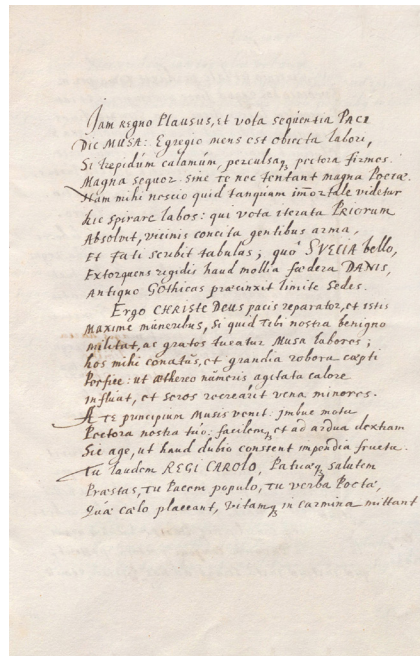 Jam REGNO Plausus, et vota sequentia PACI
DIC MUSA: Egregio mens est obiecta labori,
Si trepidum calamum, perculsaq; pectora firmes.
Magna sequor. Sine te nec tentant magna Poetæ.
Nam mihi nescio quid tanquam immortale videtur
hic spirare labos: qui vota iterata PRIORUM
Absolvit, vicinis concita gentibus arma,
Et fati scribit tabulas; quo SVECIA bello,
Extorquens rigidis haud mollia fœdera DANIS,
Antiquo GOthicas præcinxit limite Sedes.
Ergo CHRISTE DEUS pacis reparator, et istis
maxime muneribus, si quid tibi nostra benigno
militat, ac gratos tueatur Musa labores;
hos mihi conatus, et grandia robora cœpti
Perfice: ut æthereo numeris agitata calore
influat, et seros recreârit vena minores.
A TE principium Musis venit: imbue motu
Pectora nostra tuo: facilemq; et ad ardua dextram
Sic age, ut haud dubio constent impendia fructu.
Tu laudem REGI CAROLO, Patriæq; salutem
Præstas, Tu Pacem populo, Tu verba Poetæ,
Quæ cælo placeant, vitamq; in carmina mittant